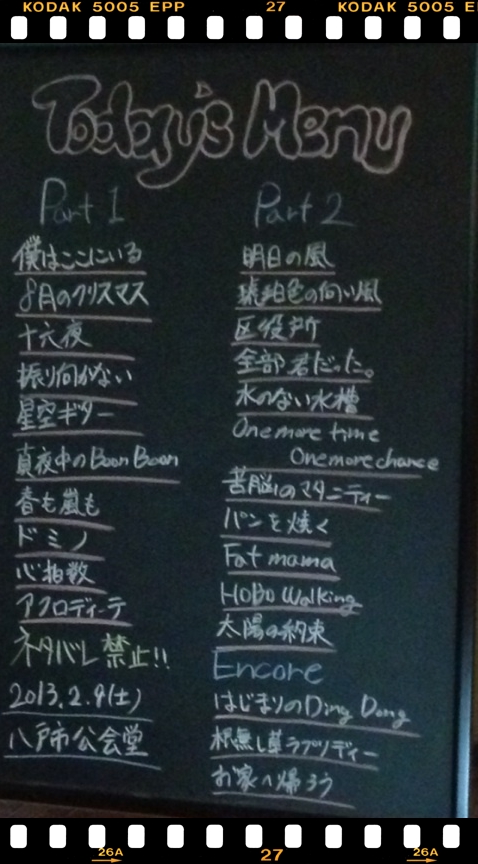 KODAK 5005 EPP 27 KODAK 5005 E
Today's Menu
Part 1
僕はここにいる
8月のクリスマス
十六夜
振り向かない
星空ギター
真夜中のBoon Boon
春も嵐も
ドミノ
心拍数
アフロディーテ
ネタバレ禁止!!
2013.2.9(土)
八戸市公会堂
Part 2
明日の風
琥珀色の向い風
区役所
全部君だった。
水のない水槽
One more time
One more chance
苦脳のマタニティー
パンを焼く
Fat mama
HOBO Walking
太陽の約束
Encore
はじまりのDing Dong
根無し草ラプソディー
お家へ帰ろう
26A 27 26A